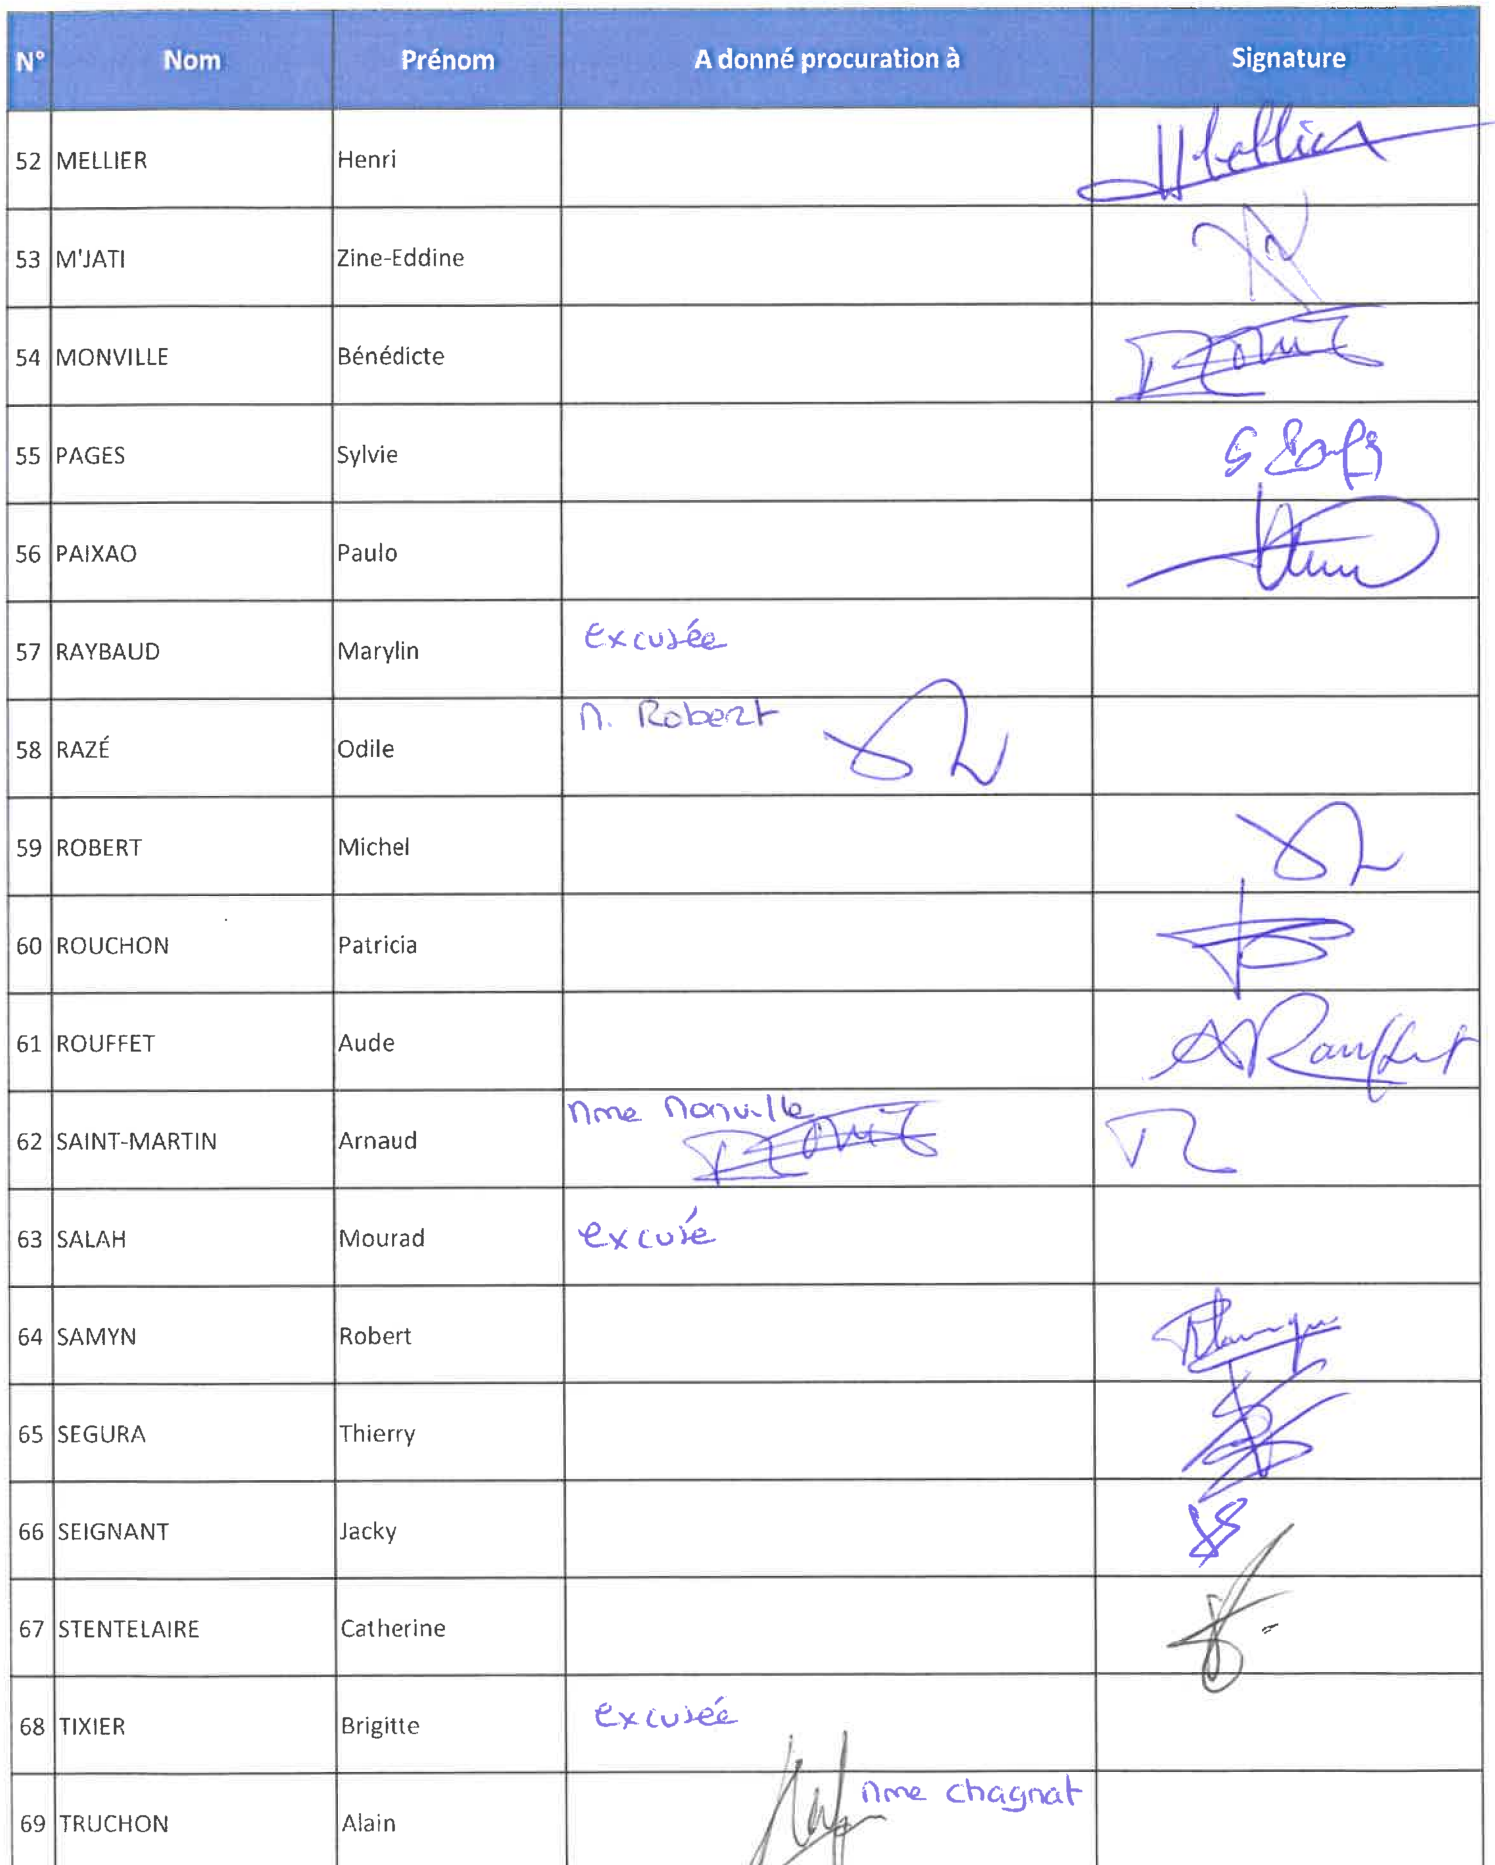 N° Nom Prénom A donné procuration à Signature
52 MELLIER Henri
53 M'JATI Zine-Eddine
54 MONVILLE Bénédicte
55 PAGES Sylvie
56 PAIXAO Paulo
57 RAYBAUD Marylin Excusée
58 RAZÉ Odile M. Robert
59 ROBERT Michel
60 ROUCHON Patricia
61 ROUFFET Aude ARouffet
62 SAINT-MARTIN Arnaud Mme Monville
63 SALAH Mourad excusé
64 SAMYN Robert
65 SEGURA Thierry
66 SEIGNANT Jacky
67 STENTELAIRE Catherine
68 TIXIER Brigitte excusée
69 TRUCHON Alain Mme chagnat